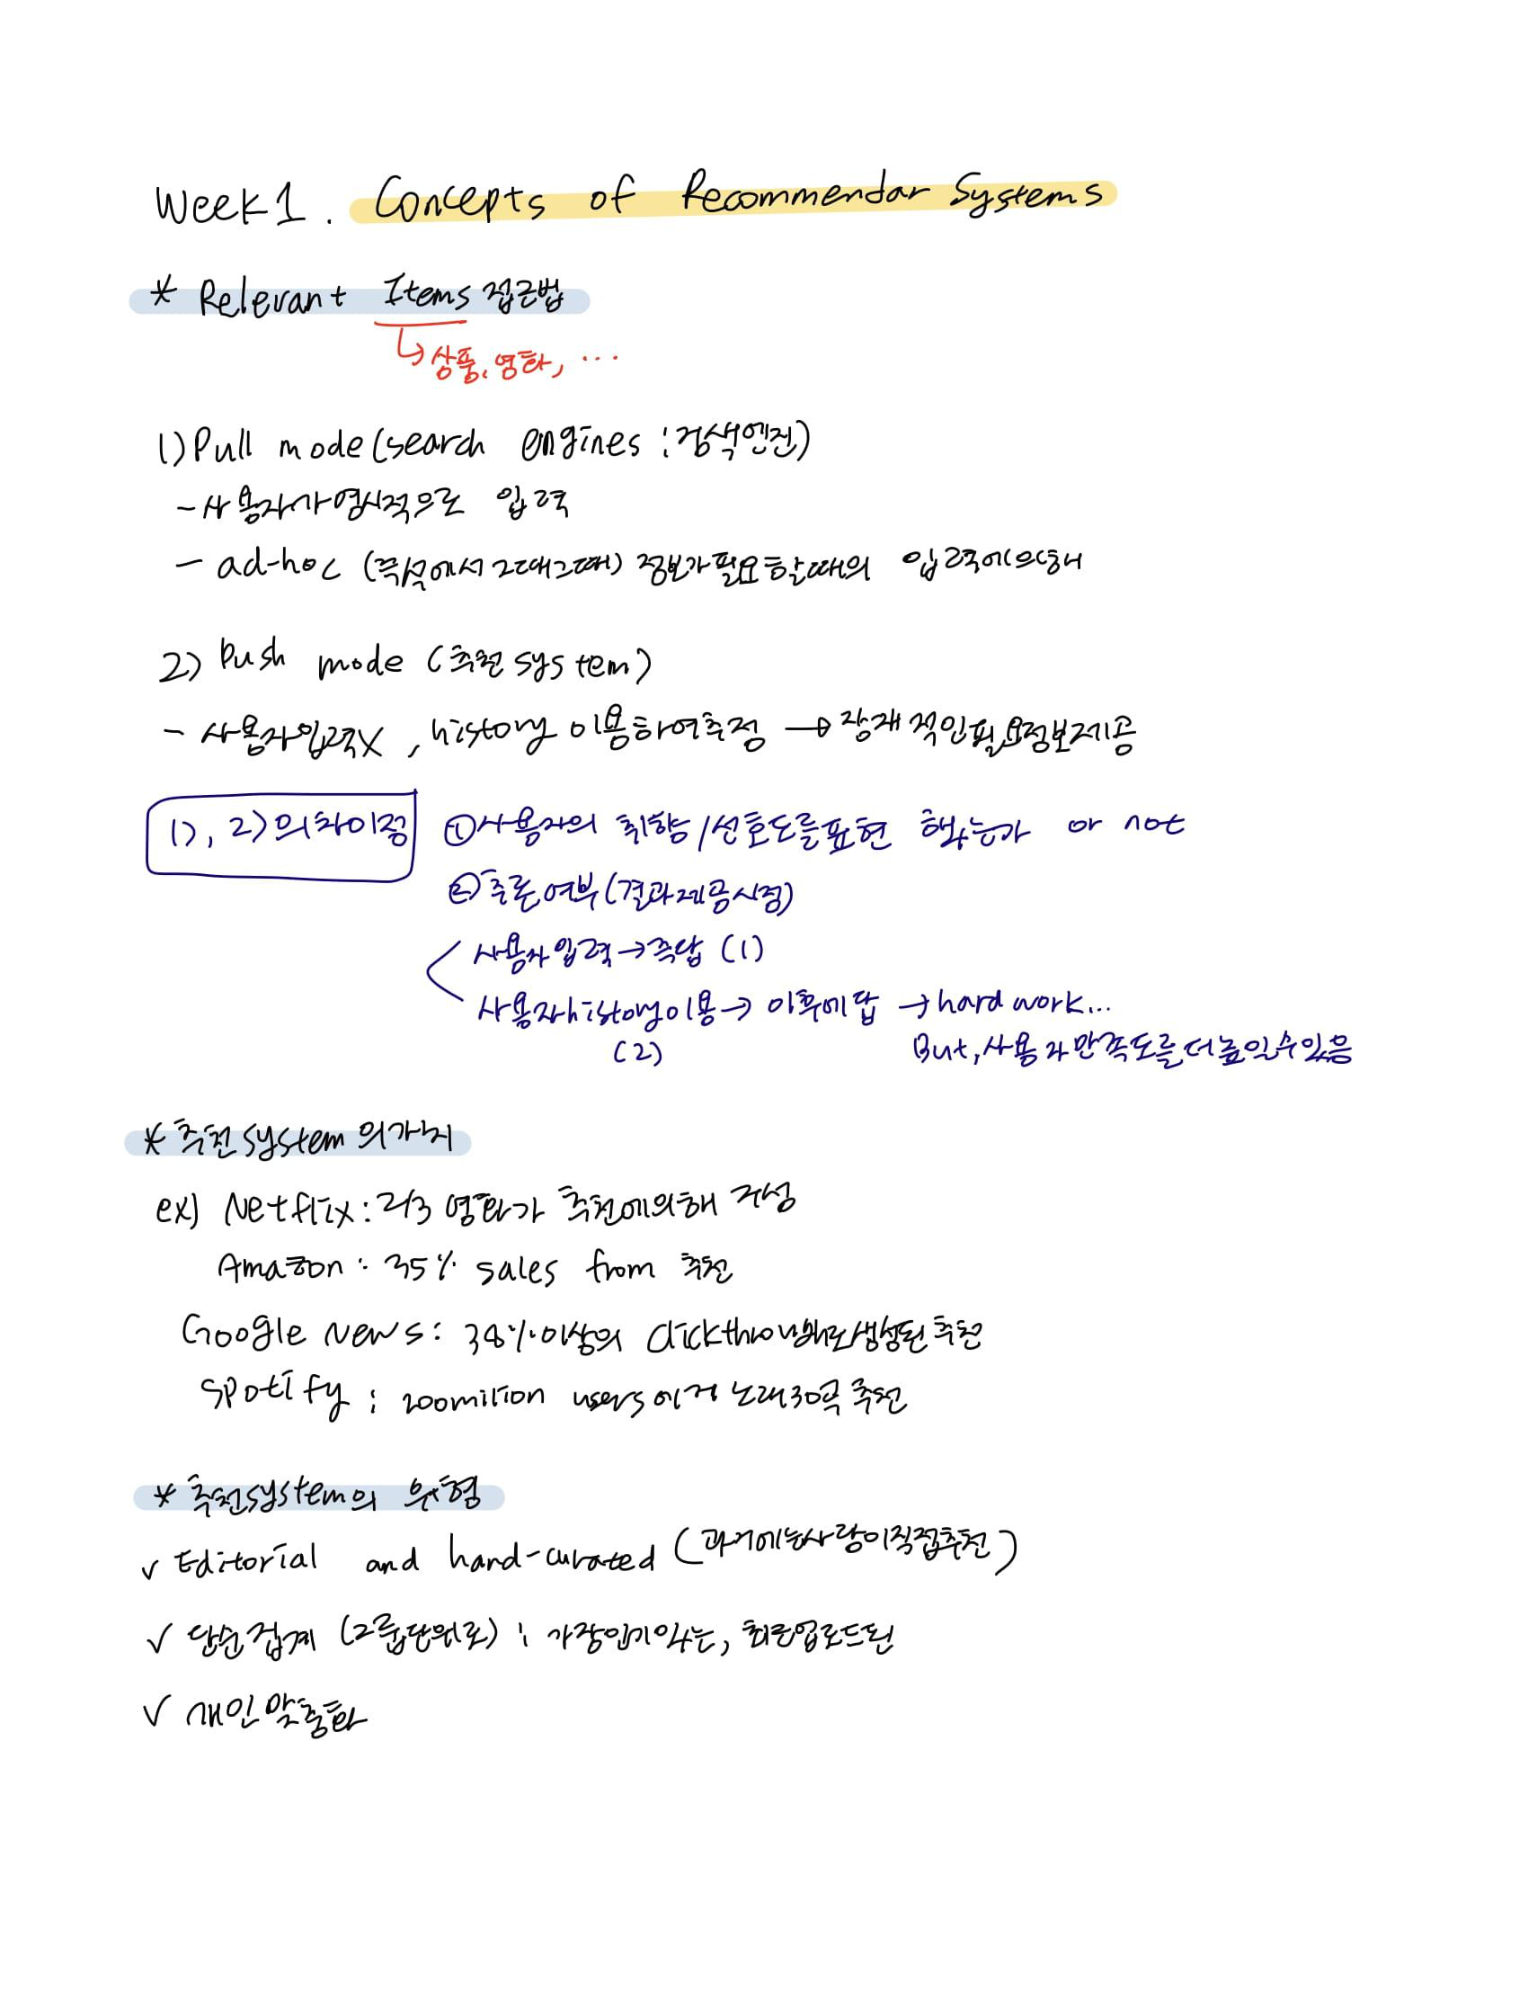 Week1. Concepts of Recommendar Systems
* Relevant Items 접근법
↳ 상품, 영화, ...
1) Pull mode (search engines : 검색엔진)
- 사용자가 명시적으로 입력
- ad-hoc (즉석에서 그때그때) 정보가 필요할 때의 입력에 의해
2) Push mode (추천 system)
- 사용자 입력 X, history 이용하여 추정 → 잠재적인 필요 정보 제공
1), 2)의 차이점
① 사용자의 취향/선호도를 표현 했는가 or not
② 추론 여부 (결과 제공 시점)
사용자 입력 → 즉답 (1)
사용자 history 이용 → 이후에 답 → hard work...
(2) But, 사용자 만족도를 더 높일 수 있음
* 추천 system의 가치
ex) Netflix : 2/3 영화가 추천에 의해
Amazon : 35% sales from 추천
Google News : 38% 이상의 생성된 추천
Spotify : 200milion users에게 노래 30곡 추천
* 추천 system의 유형
✓ Editorial and hand-curated (과거에는 사람이 직접 추천)
✓ 단순 집계 (그룹 단위로) : 가장 인기있는, 최근 업로드된
✓ 개인 맞춤화